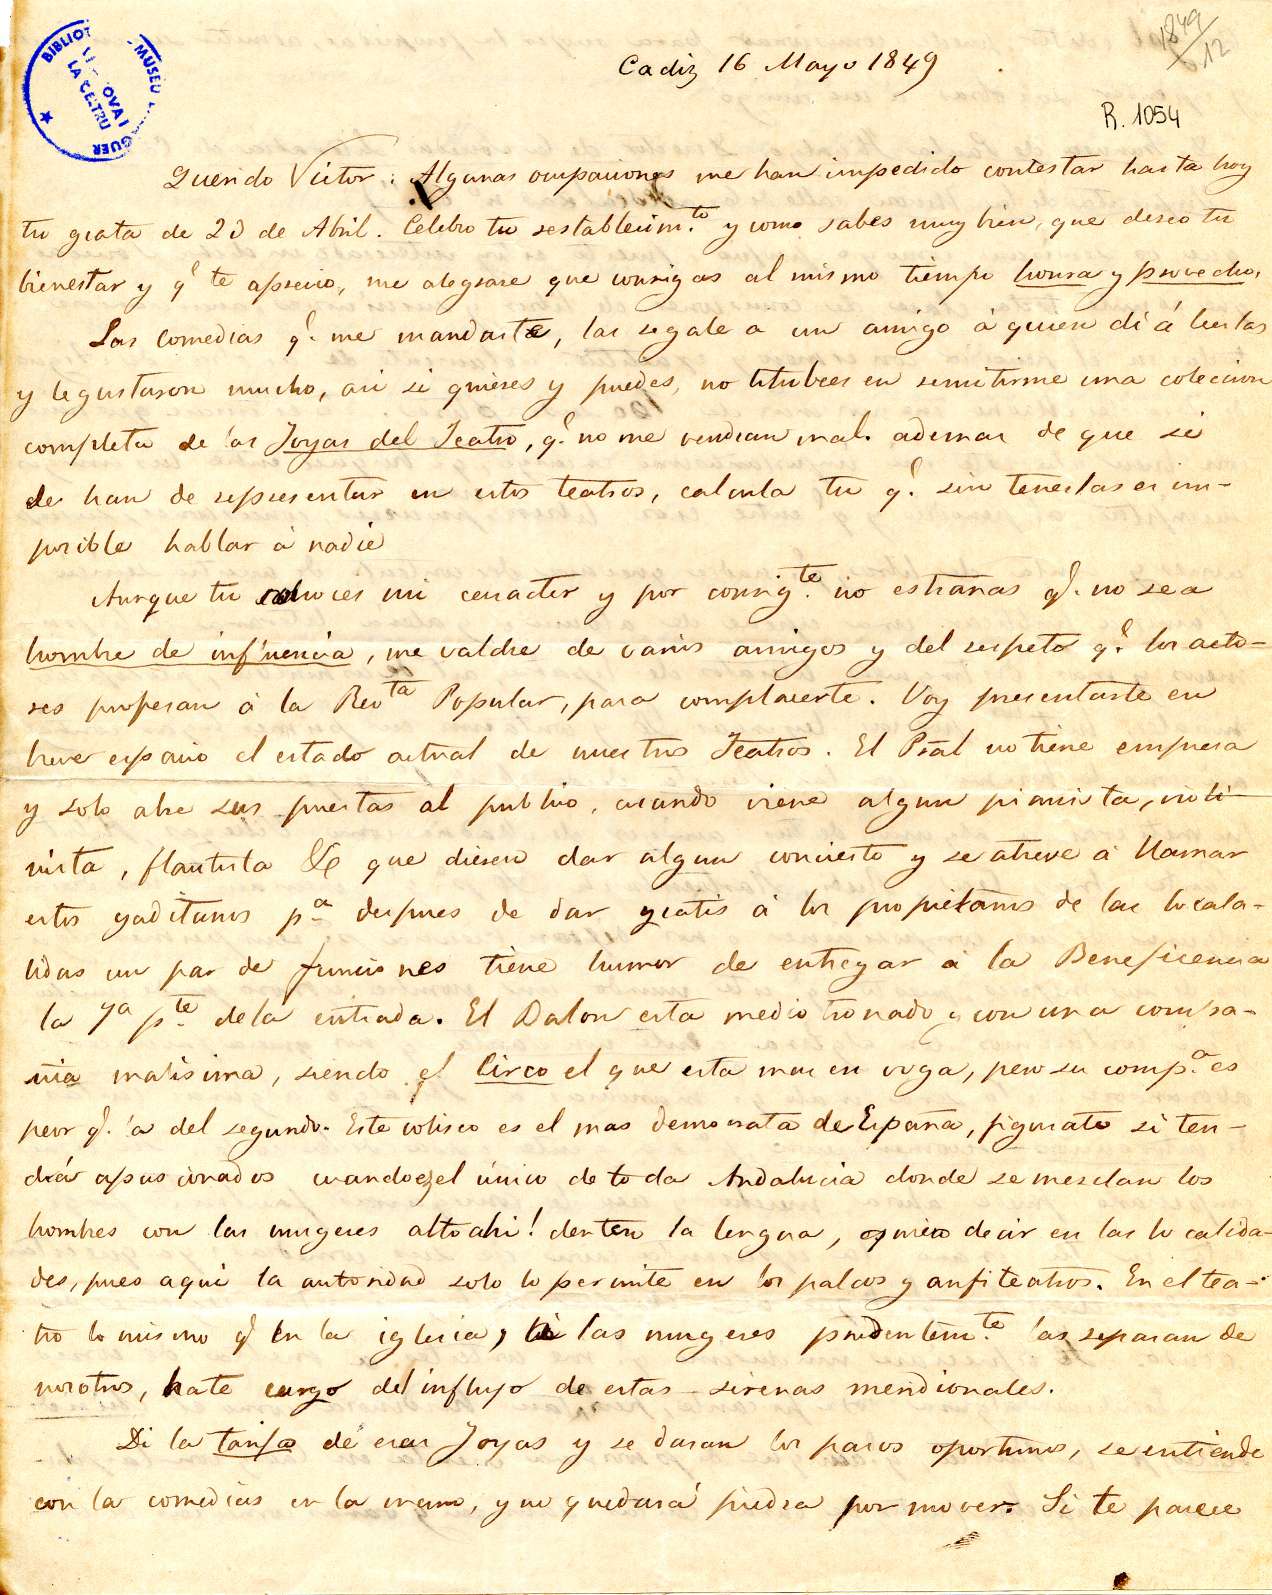 1849/12
BIBLIOT MUSEU
OVA I
LA GELTRU
GUER
Cadiz 16 Mayo 1849
R. 1054
Querido Victor: Algunas ocupaciones me han impedido contestar hasta hoy
tu grata de 20 de Abril. Celebro tu restablecim.to y como sabes muy bien, que deseo tu
bienestar y q.e te aprecio, me alegrare que consigas al mismo tiempo honra y provecho.
Las comedias q.e me mandaste, las regale a un amigo á quien di á leerlas
y le gustaron mucho, asi si quieres y puedes, no titubees en remitirme una coleccion
completa de las Joyas del Teatro, q.e no me vendran mal. ademas de que si
se han de representar en estos teatros, calcula tu q.e sin tenerlas es im-
posible hablar á nadie
Aunque tu conoces mi caracter y por consig.te no estrañas q.e no sea
hombre de influencia, me valdre de varios amigos y del respeto q.e los acto-
res profesan á la Rev.ta Popular, para complacerte. Voy presentarte en
breve espacio el estado actual de nuestros Teatros. El Pral no tiene empresa
y solo abre sus puertas al publico, cuando viene algun pianista, violi-
nista, flautista &c que desea dar algun concierto y se atreve á llamar
estos gaditanos p.a despues de dar gratis á los propietarios de las locala-
lidas un par de funciones tiene humor de entregar á la Beneficencia
la 7a p.te de la entrada. El Balon esta medio tronado y con una compa-
ñia malisima, siendo el Circo el que esta mas en voga, pero su comp.a es
peor q.e la del segundo. Este coliseo es el mas democrata de España, figurate si ten-
drá apasionados cuando es el único de toda Andalucia donde se mesclan los
hombres con las mugeres alto ahi! detente la lengua, quiero decir en las localida-
des, pues aqui la autoridad solo lo permite en los palcos y anfiteatros. En el tea-
tro lo mismo q.e en la iglesia, á las mugeres prudentem.te las separan de
nosotros, hate cargo del influjo de estas sirenas meridionales.
Di la tarifa de esas Joyas y se daran los pasos oportunos, se entiende
con las comedias en la mano, y no quedará piedra por mover. Si te parece